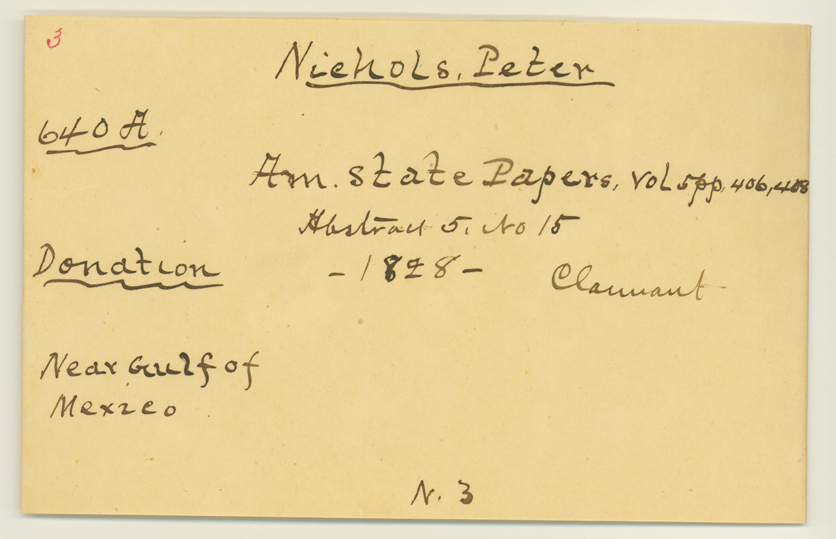 3
Nichols, Peter
640 A.
Am. State Papers, Vol 5 pp. 406, 408
Abstract 5, No 15
Donation
- 1828 -
Claimant
Near Gulf of
Mexico
N. 3